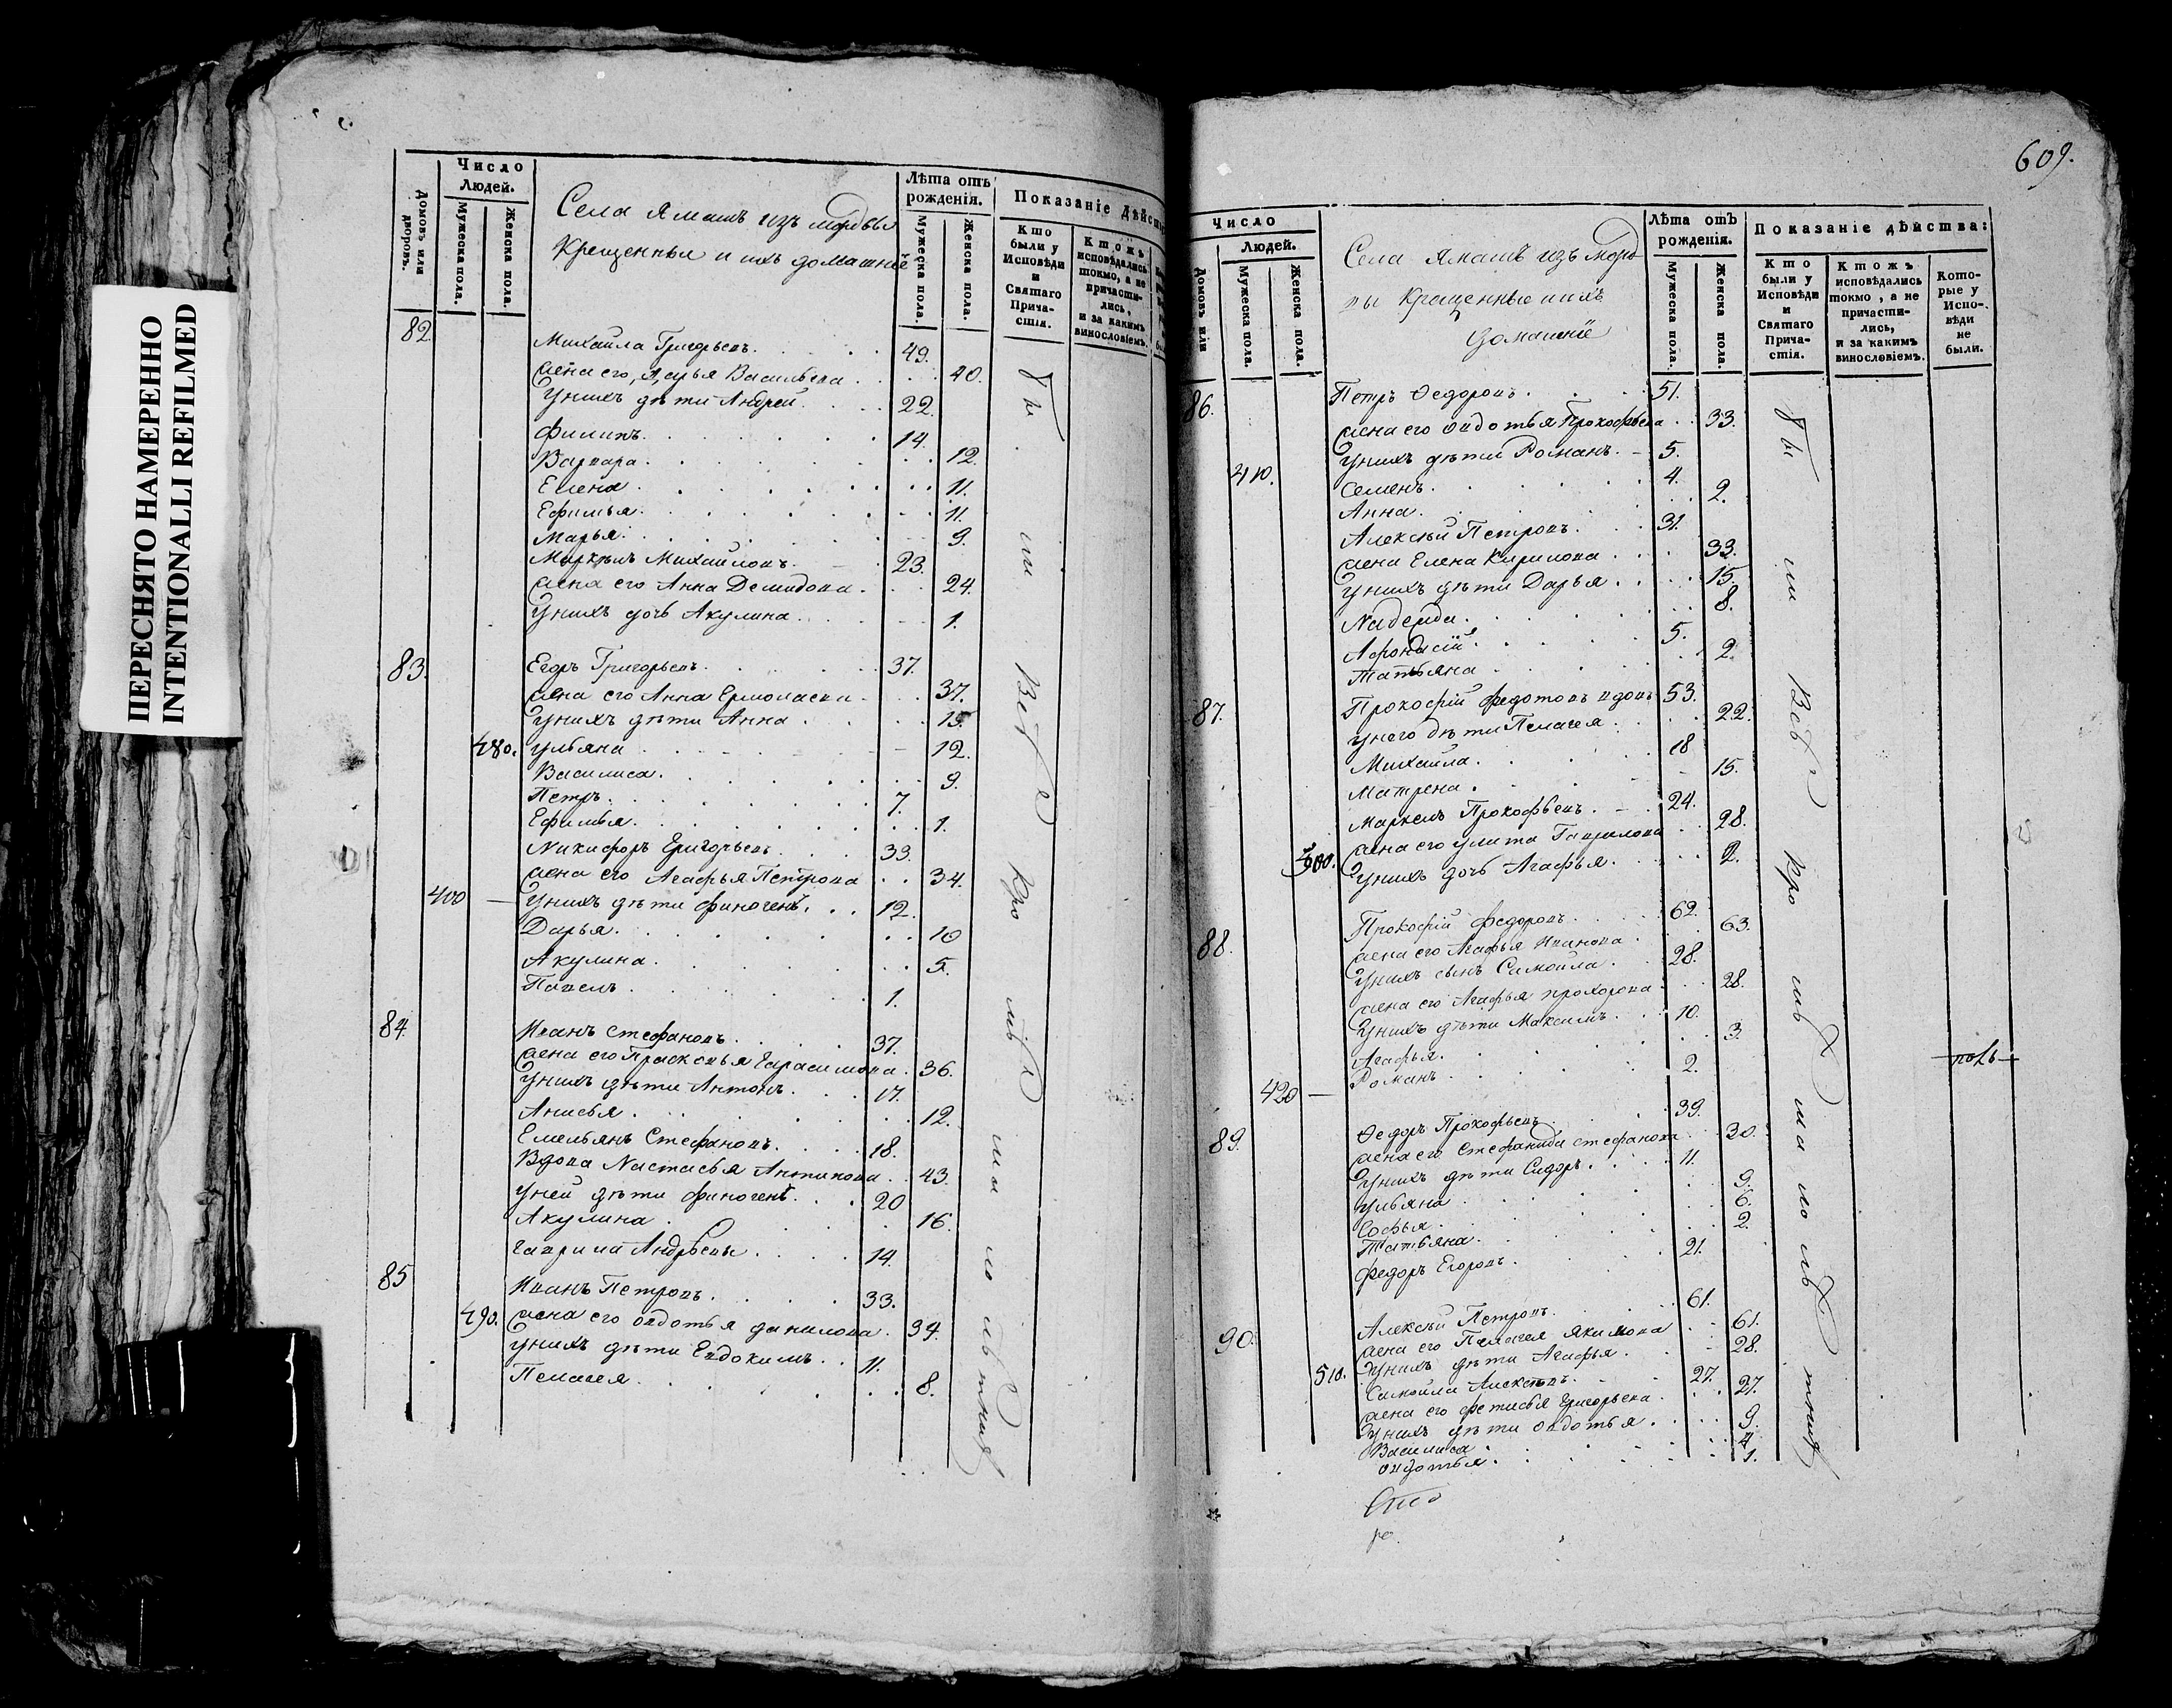 ПЕРЕСНЯТО НАМЕРЕННО
INTENTIONALLI REFILMED
Домовъ или дворовъ.
Число Людей.
Мужеска пола.
Женска пола.
Села Ямашъ изъ мордвы
Крещенныя и ихъ домашніе
Лѣта отъ рожденія.
Мужеска пола.
Женска пола.
Показаніе дѣйс
Кто были у Исповѣди и Святаго Причастія.
Ктожъ исповѣдались токмо, а не причастились, и за какимъ винословіемъ.
82 Михайла Григорьевъ 49.
жена его, Дарья Васильева 40.
у нихъ дѣти Андрей 22.
Филипъ 14.
Варвара 12.
Елена 11.
Ефимья 11.
Марья 9.
Маркелъ Михайловъ 23.
жена его Анна Демидова 24.
у нихъ дочь Акулина 1.
83. Егоръ Григорьевъ 37.
жена его Анна Ермолаева 37.
у нихъ дѣти Анна 15.
480. Ульяна 12.
Василиса 9.
Петръ 7.
Ефимья 1.
Никифоръ Григорьевъ 33.
жена его Агафья Петрова 34.
400 у нихъ дѣти Финогенъ 12.
Дарья 10
Акулина 5.
Павелъ 1.
84. Иванъ Стефановъ 37.
жена его Прасковья Гарасимова 36.
у нихъ дѣти Антонъ 17.
Анисья 12.
Емельянъ Стефановъ 18.
Вдова Настасья Антипова 43.
у ней дѣти Финогенъ 20
Акулина 16.
Гаврила Андреевъ 14.
85 Иванъ Петровъ 33.
490. жена его Овдотья Данилова 34.
у нихъ дѣти Евдокимъ 11.
Пелагея 8.
609.
Домовъ или
Число Людей.
Мужеска пола.
Женска пола.
Села Ямашъ изъ морд
вы Крещенные и ихъ
домашніе
Лѣта отъ рожденія.
Мужеска пола.
Женска пола.
Показаніе дѣйства:
Кто были у Исповѣди и Святаго Причастія.
Ктожъ исповѣдались токмо, а не причастились, и за какимъ винословіемъ.
Которые у Исповѣди не были.
86. Петръ Ѳедоровъ 51.
жена его Овдотья Прокофьева 33.
у нихъ дѣти Романъ 5.
410. Семенъ 4.
Анна 2.
Алексѣй Петровъ 31.
жена Елена Кирилова 33.
у нихъ дѣти Дарья 15.
Надежда 8.
Афонасій 5.
Татьяна 2.
87. Прокофій Федотовъ вдовъ 53.
у него дѣти Пелагея 22.
Михайла 18
Матрена 15.
Маркелъ Прокофьевъ 24.
жена его Улита Гаврилова 28.
500. у нихъ дочь Агафья 2.
88. Прокофій Федоровъ 62.
жена его Агафья Иванова 63.
у нихъ сынъ Самойла 28.
жена его Агафья Прохорова 28.
у нихъ дѣти Максимъ 10.
Агафья 3.
420 Романъ 2.
89. Ѳедоръ Прокофьевъ 39.
жена его Стефанида Стефанова 30.
у нихъ дѣти Сидоръ 11.
Ульяна 9.
Софья 6.
Татьяна 2.
Федоръ Егоровъ 21.
90. Алексѣй Петровъ 61.
жена его Пелагея Якимова 61.
510. у нихъ дѣти Агафья 28.
Самойла Алексѣевъ 27.
жена его Фетисья Григорьева 27.
у нихъ дѣти Овдотья 9.
Василиса 4.
Овдотья 1.